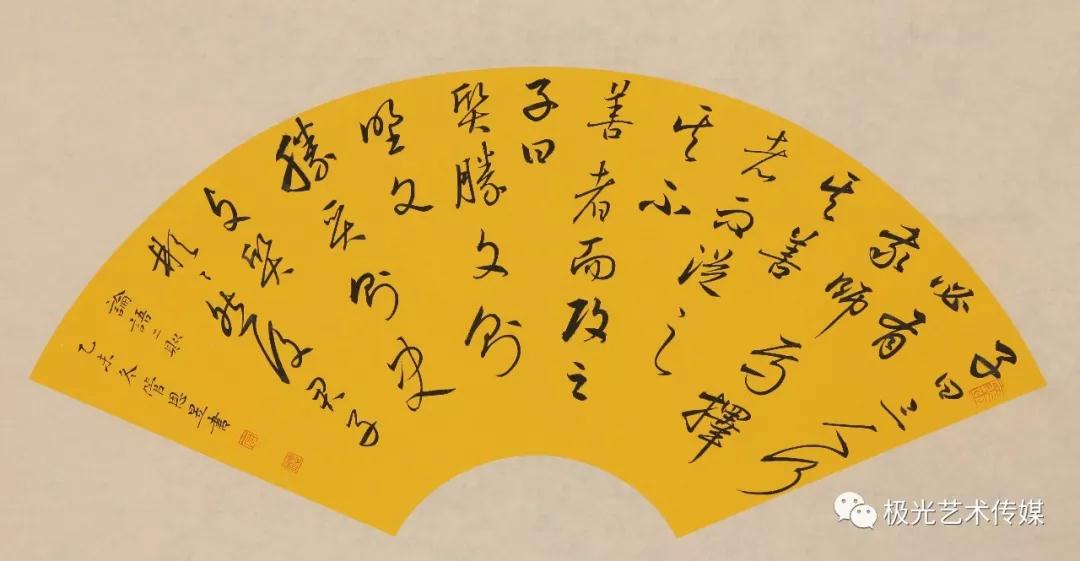 子曰三人行
必有
我師焉擇
其善
者而從之
其不
善者而改之
子曰
質勝文則
野文
勝質則史
文質
彬彬然後君子
論語二則
乙未冬管恩書
极光艺术传媒